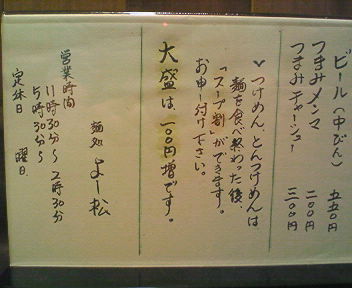 ビール(中びん) 五五〇円
つまみメンマ 二〇〇円
つまみチャーシュー 三〇〇円
つけめん、とんつけめんは
麺を食べ終わった後、
「スープ割」ができます。
お申し付け下さい。
大盛は一〇〇円増です。
麺処 よし松
営業時間
11時30分〜2時30分
5時30分〜
定休日 曜日